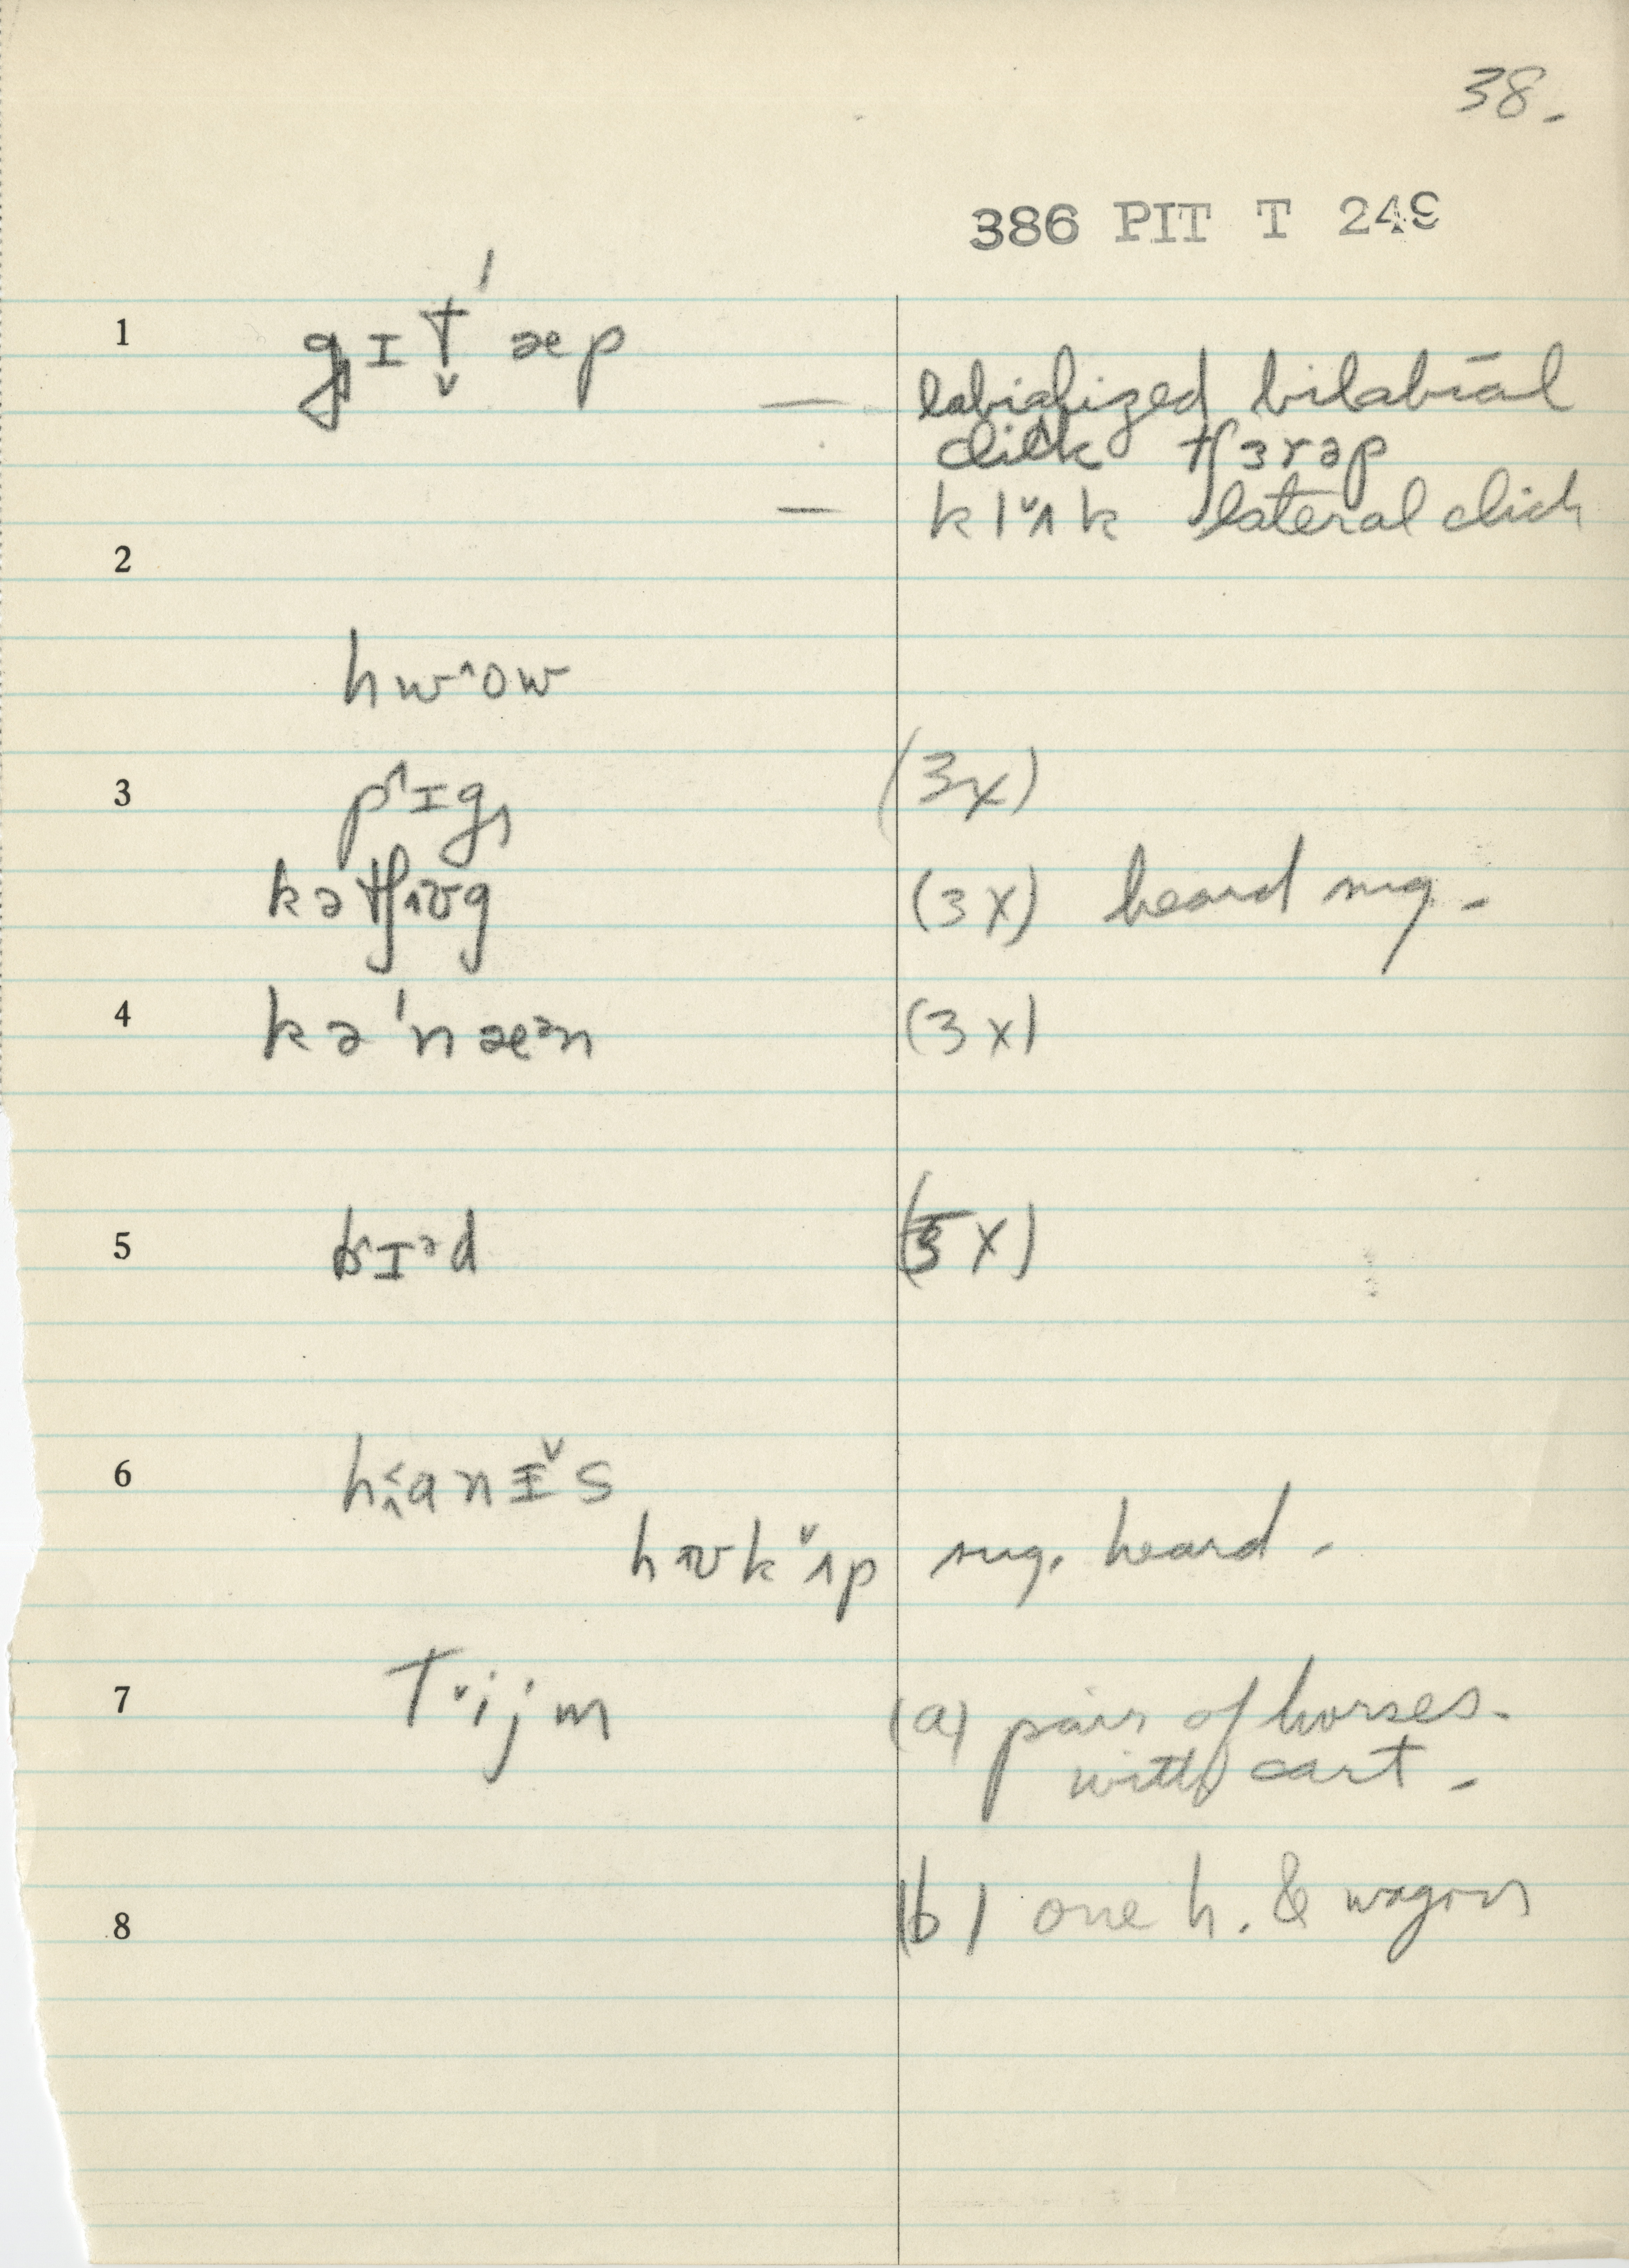 38.
386 PIT T 249
1 gɪt̬ˈæp
— labialized bilabial
click tʃɜrəp
— klˇʌk lateral click
2
hw^ow
3 p^ɪg (3x)
kətʃʌʊg (3x) heard sug.
4 kəˈnæᵊn (3x)
5 b^ɪᵊd (5x)
6
hʌʊkˇʌp sug. heard.
7 Tˇijm (a) pair of horses
with cart.
8 (b) one h. & wagon